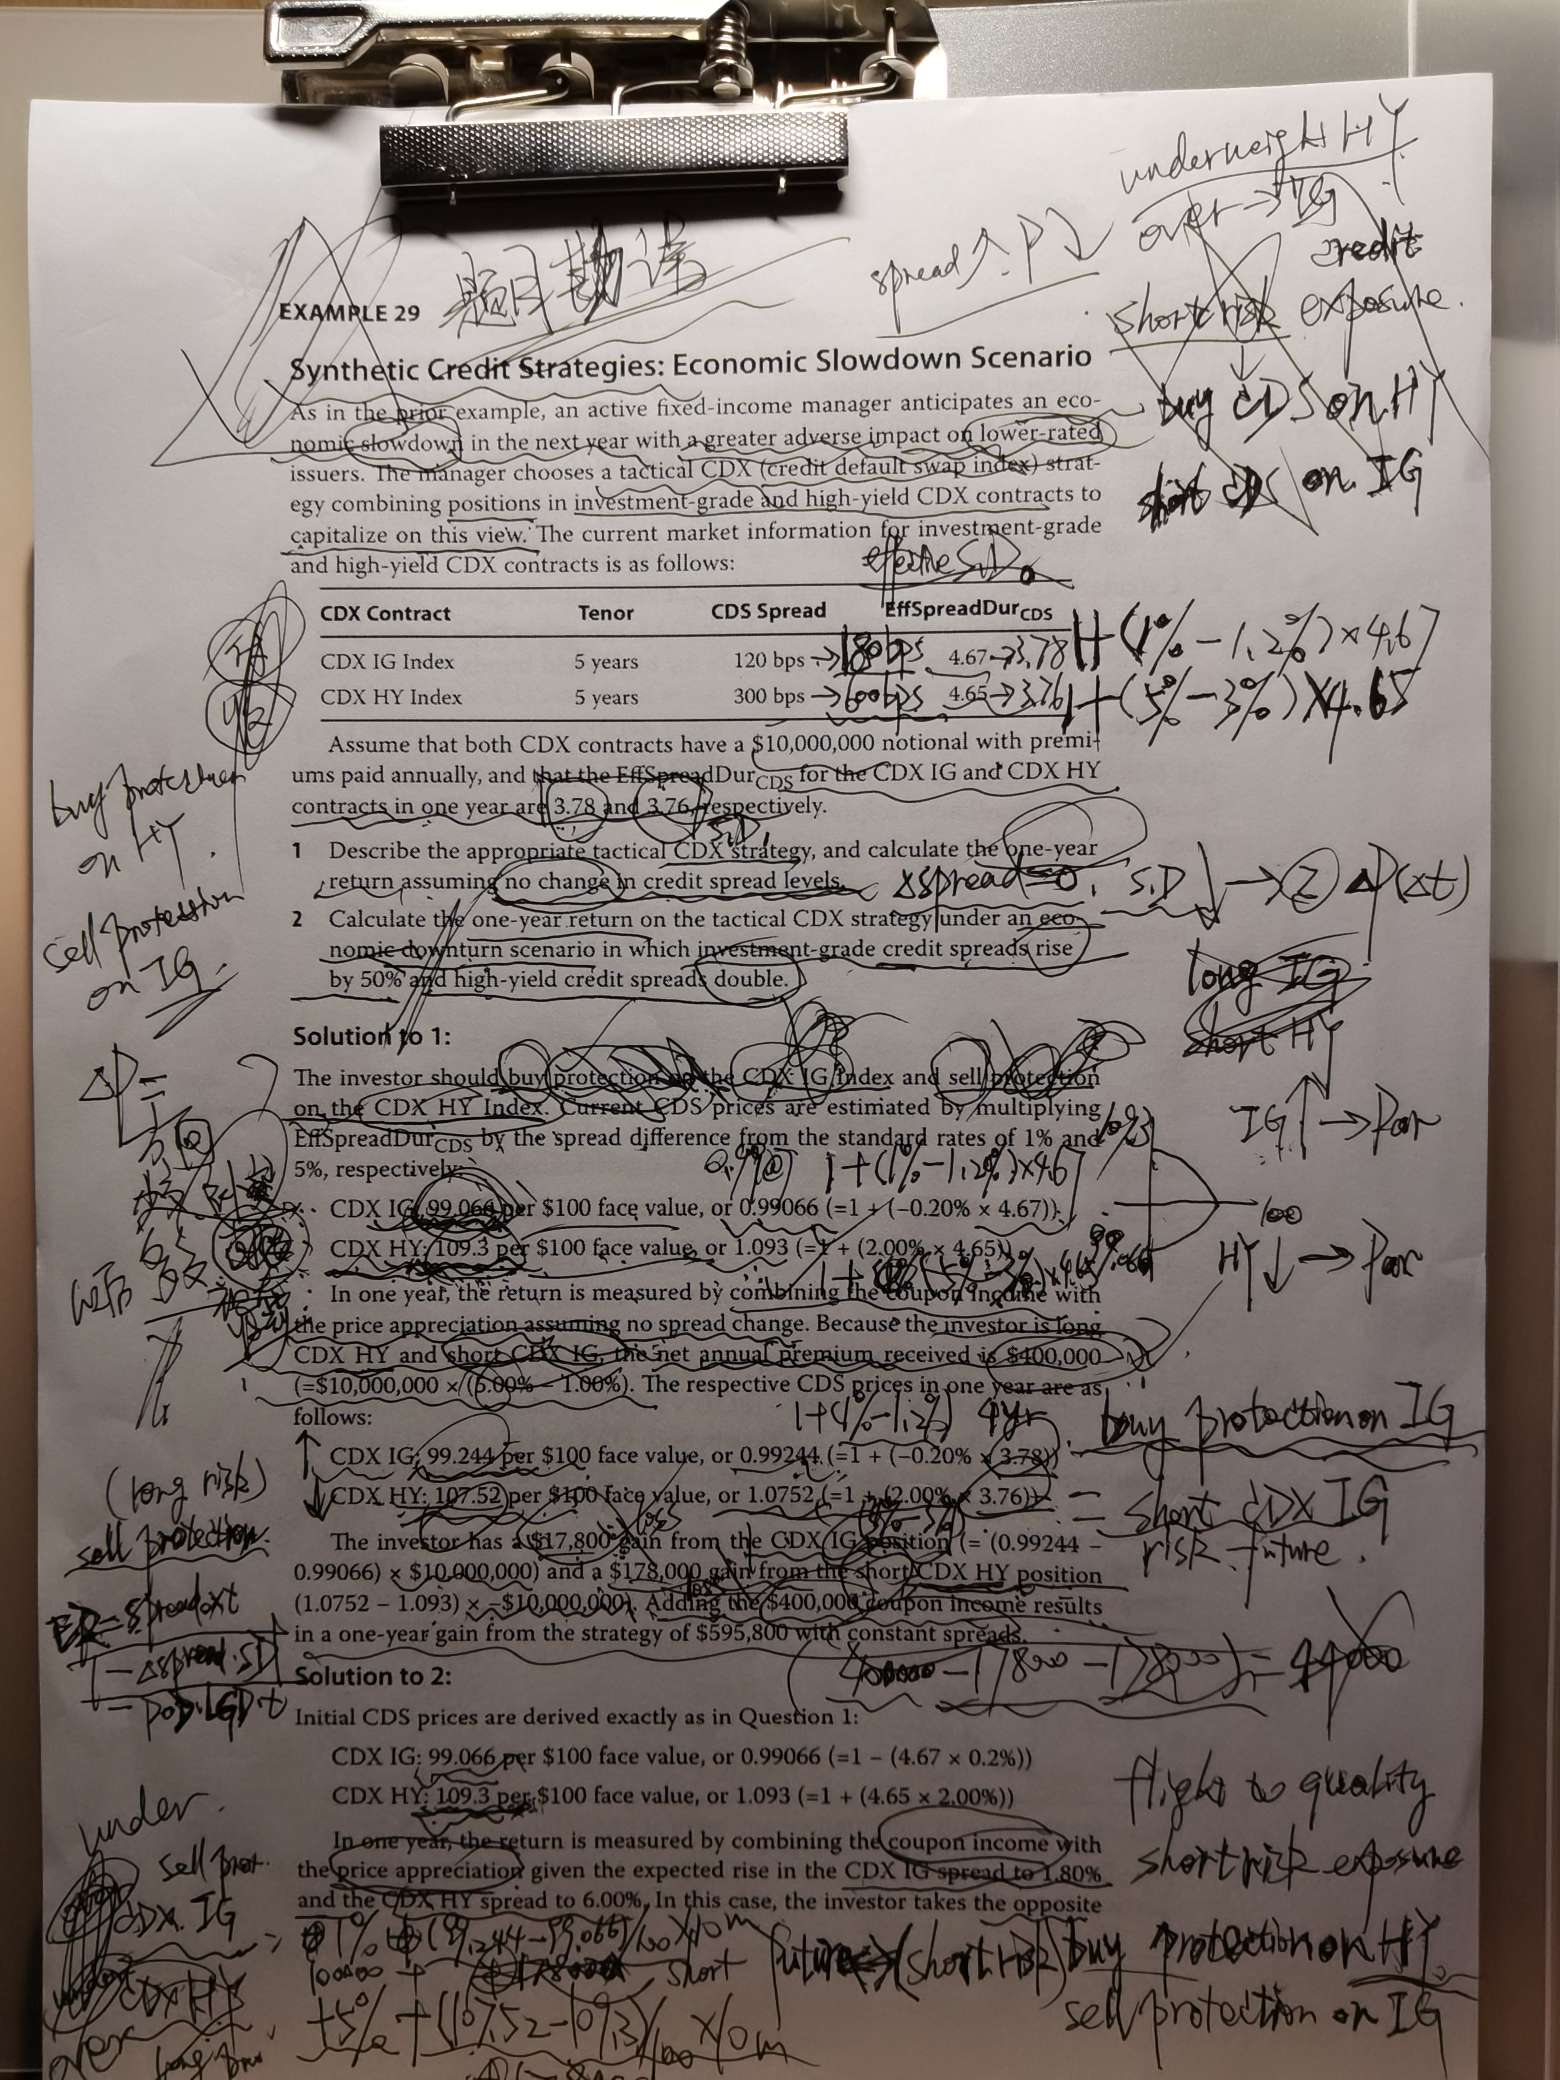 underweight HY
over → IG
题目勘误
spread↑ P↓
credit
short risk exposure.
EXAMPLE 29
Synthetic Credit Strategies: Economic Slowdown Scenario
As in the prior example, an active fixed-income manager anticipates an eco-
nomic slowdown in the next year with a greater adverse impact on lower-rated
issuers. The manager chooses a tactical CDX (credit default swap index) strat-
egy combining positions in investment-grade and high-yield CDX contracts to
capitalize on this view. The current market information for investment-grade
and high-yield CDX contracts is as follows:
buy CDS on HY
short CDS on IG
effective S.D.
CDX Contract Tenor CDS Spread EffSpreadDurCDS
CDX IG Index 5 years 120 bps → 180bps 4.67 → 3.78 1+(1%-1.2%)×4.67
CDX HY Index 5 years 300 bps → 600bps 4.65 → 3.76 1+(5%-3%)×4.65
Assume that both CDX contracts have a $10,000,000 notional with premi-
ums paid annually, and that the EffSpreadDurCDS for the CDX IG and CDX HY
contracts in one year are 3.78 and 3.76, respectively.
buy protection
on HY.
sell protession
on IG.
S.D.
1 Describe the appropriate tactical CDX strategy, and calculate the one-year
return assuming no change in credit spread levels. Δspread=0. S.D↓ → ② ΔP(Δt)
2 Calculate the one-year return on the tactical CDX strategy under an eco-
nomic downturn scenario in which investment-grade credit spreads rise
by 50% and high-yield credit spreads double.
long IG
short HY
Solution to 1:
The investor should buy protection on the CDX IG Index and sell protection
on the CDX HY Index. Current CDS prices are estimated by multiplying
EffSpreadDurCDS by the spread difference from the standard rates of 1% and
5%, respectively:
IG↑ → Par
1+(1%-1.2%)×4.67
CDX IG: 99.066 per $100 face value, or 0.99066 (=1 + (−0.20% × 4.67))
CDX HY: 109.3 per $100 face value, or 1.093 (=1 + (2.00% × 4.65))
100
HY↓ → Par
In one year, the return is measured by combining the coupon income with
the price appreciation assuming no spread change. Because the investor is long
CDX HY and short CDX IG, the net annual premium received is $400,000
(=$10,000,000 × (5.00% − 1.00%). The respective CDS prices in one year are as
follows:
1+(1%-1.2%) 4yr
buy protection on IG
CDX IG: 99.244 per $100 face value, or 0.99244 (=1 + (−0.20% × 3.78))
CDX HY: 107.52 per $100 face value, or 1.0752 (=1 + (2.00% × 3.76))
= short CDX IG
risk future.
(long risk)
sell protection.
The investor has a $17,800 gain from the CDX IG position (= (0.99244 −
0.99066) × $10,000,000) and a $178,000 gain from the short CDX HY position
(1.0752 − 1.093) × −$10,000,000). Adding the $400,000 coupon income results
in a one-year gain from the strategy of $595,800 with constant spreads.
loss
loss
ER = Spread₀×t
− Δspread·SD
− POD·LGD·t
Solution to 2:
Initial CDS prices are derived exactly as in Question 1:
CDX IG: 99.066 per $100 face value, or 0.99066 (=1 − (4.67 × 0.2%))
CDX HY: 109.3 per $100 face value, or 1.093 (=1 + (4.65 × 2.00%))
In one year, the return is measured by combining the coupon income with
the price appreciation given the expected rise in the CDX IG spread to 1.80%
and the CDX HY spread to 6.00%. In this case, the investor takes the opposite
flight to quality
short risk exposure
buy protection on HY.
sell protection on IG
under
sell prot.
CDX IG
CDX HY
over
(99.244-99.066)/100×10m
short future (short risk)
+5% + (107.52-109.3)/100×10m